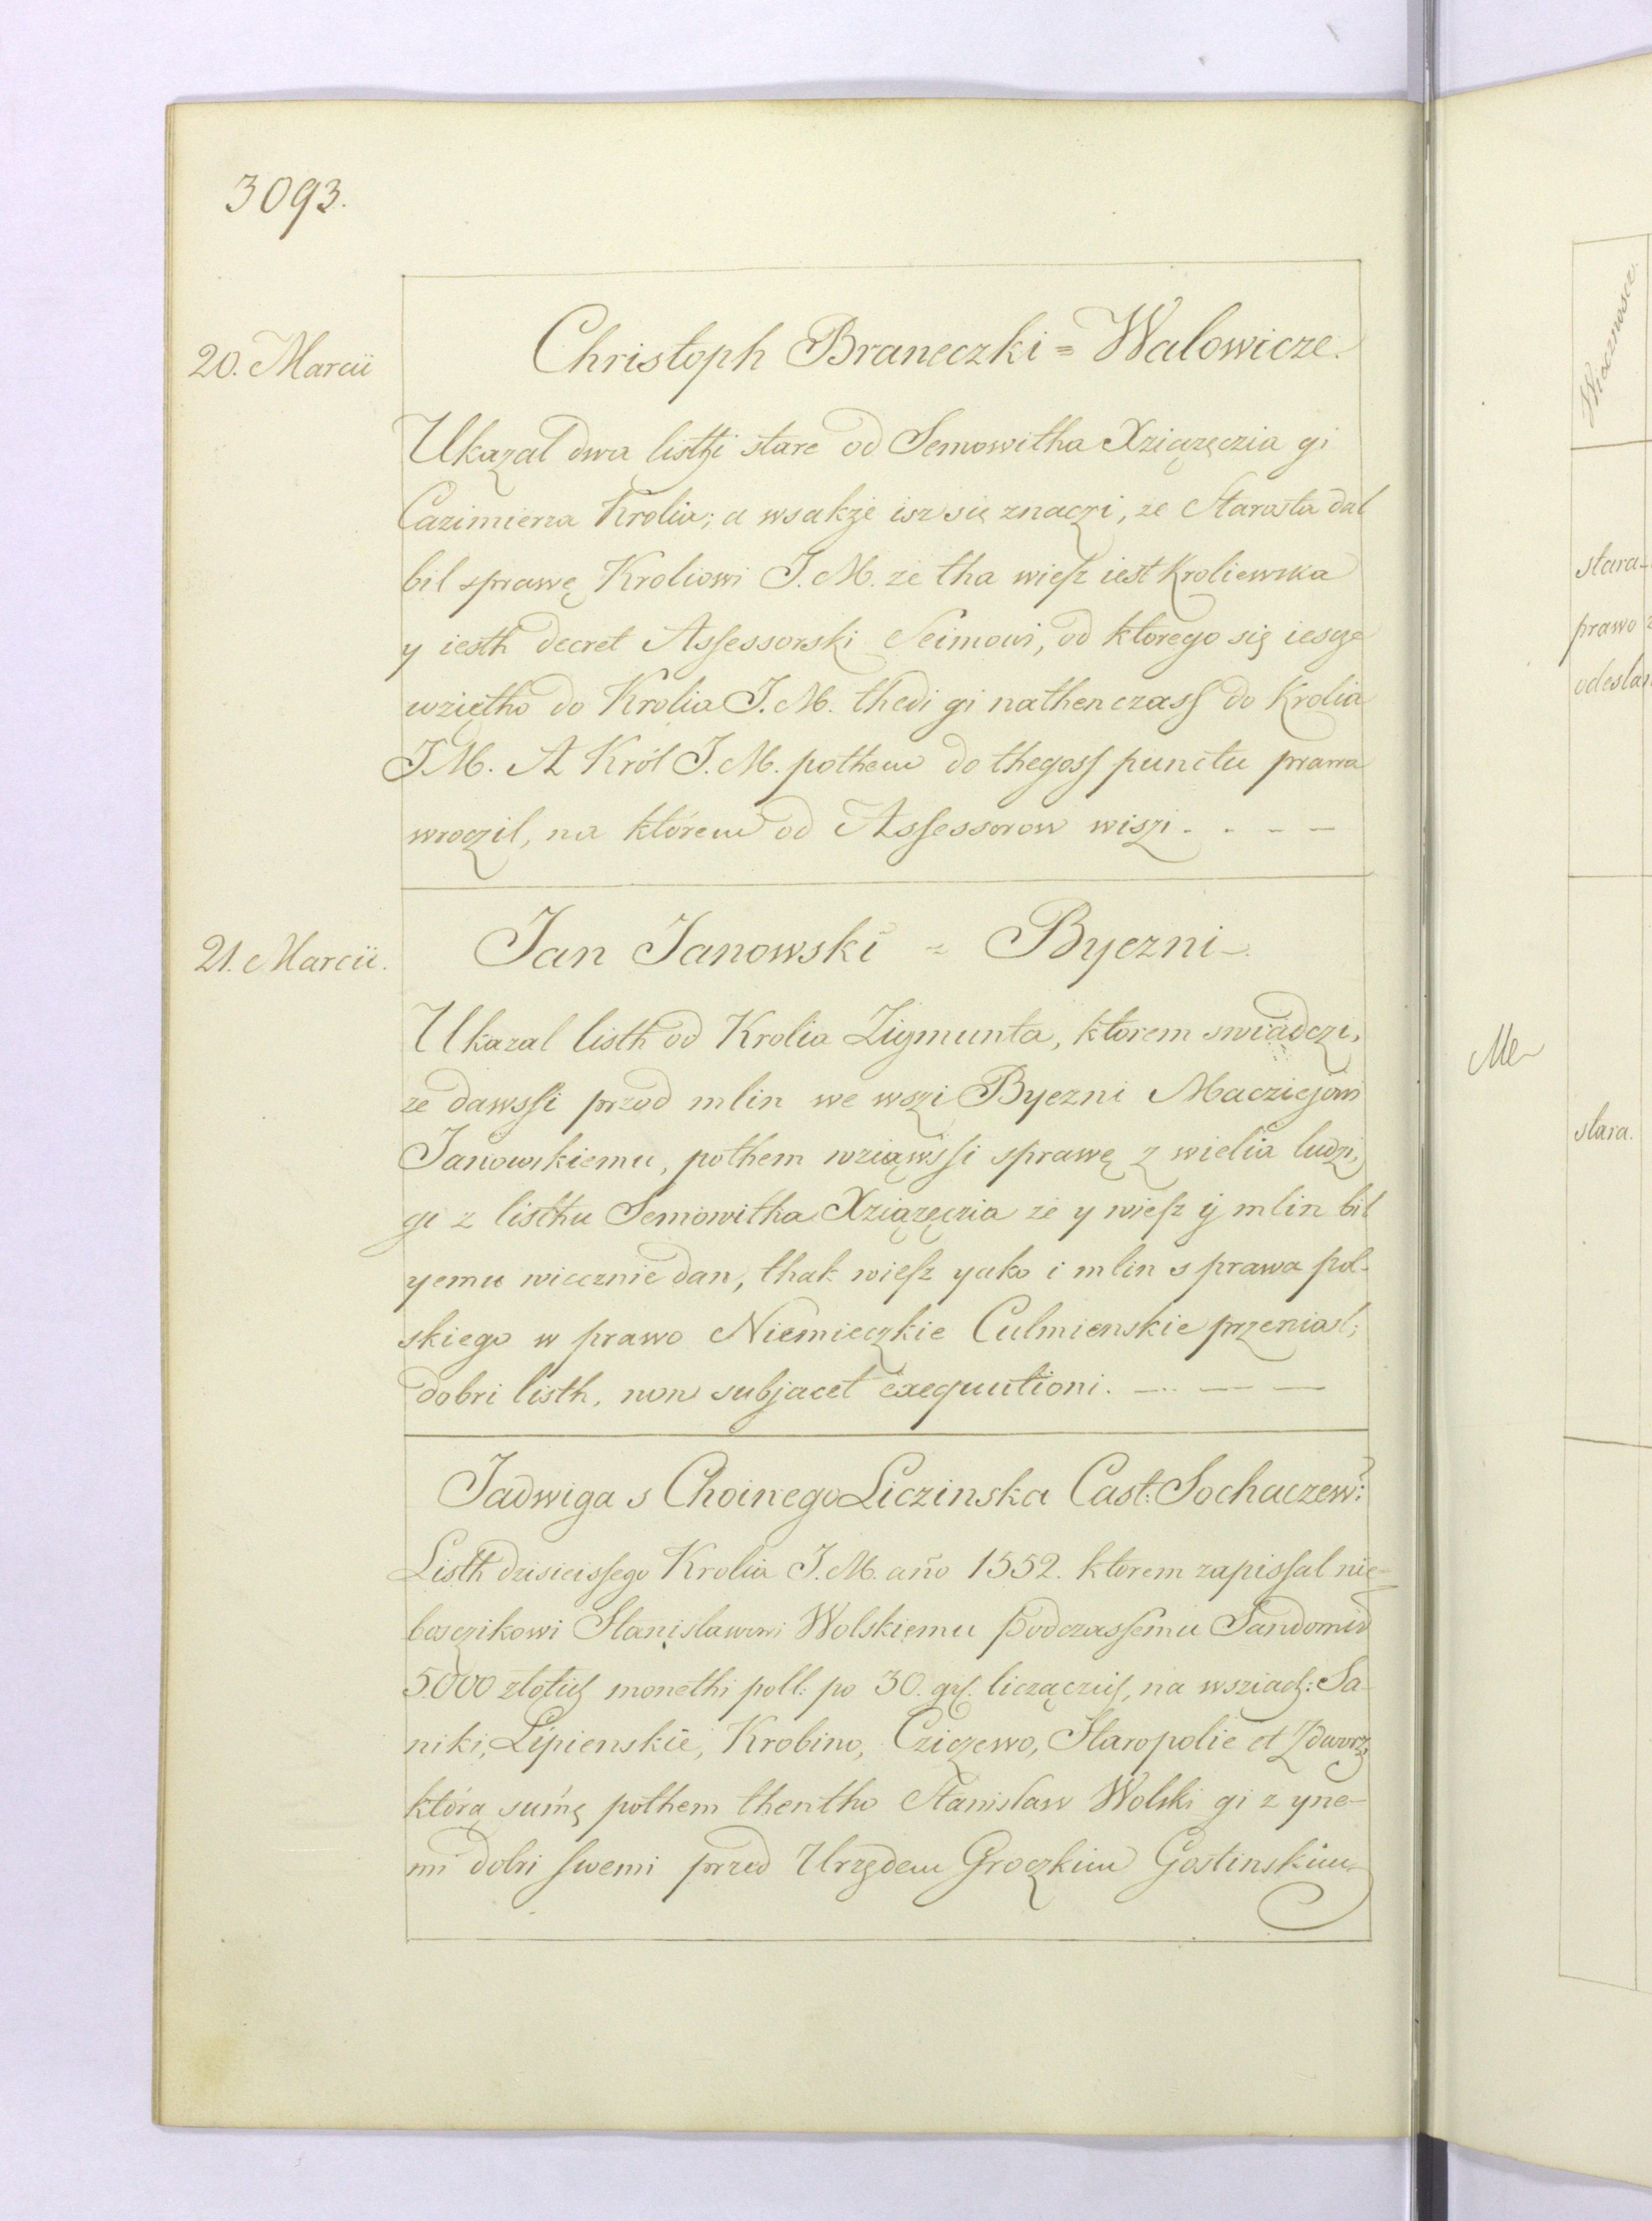 3093.
20. Marcii
Christoph Braneczki = Walowicze.
Ukazal dwa listhi stare od Semowitha Xziązęczia gi
Cazimierza Krolia; a wsakze isz się znaczi, ze Starosta dal
bil sprawę Kroliowi J. M. ze tha wiesz iest Kroliewska
y iesth decret Assessorski Seimowi, od ktorego się iescze
wziętho do Krolia J. M. thedi gi nathenczass do Krolia
J. M. A Król J. M. pothem do thegoss punctu prawa
wroczil, na którem od Assessorow wiszi. . . – –
21. Marcii.
Jan Janowski = Byezni –.
Ukazal listh od Krolia Zigmunta, ktorem swiadczi,
ze dawssi przod mlin we wszi Byezni Macziejowi
Janowskiemu, pothem wziąwssi sprawę z wielia ludzi,
gi z listhu Semowitha Xziązęczia ze y wiesz ÿ mlin bil
yemu wiecznie dan, thak wiesz yako i mlin s prawa pol-
skiego w prawo Niemieczkie Culmienskie przeniasl;
dobri listh, non subjacet exequutioni. — — —
Jadwiga s Choinego Liczinska Cast: Sochaczew:
Listh dzisieissego Krolia J. M. año 1552. ktorem zapissal nie-
bosczikowi Stanislawowi Wolskiemu Podczassemu Sandomir
5000 zlotich monethi poll: po 30. gr. liczączich, na wsziach: Sa-
niki, Lipienskie, Krobino, Cziczewo, Staropolie et Zdworz,
którą sumę pothem thentho Stanislaw Wolski gi z yne-
mi dobri swemi przed Urzędem Groczkim Gostinskim
Wlocznosce.
stara-
prawo z
odeslan
Me
stara.